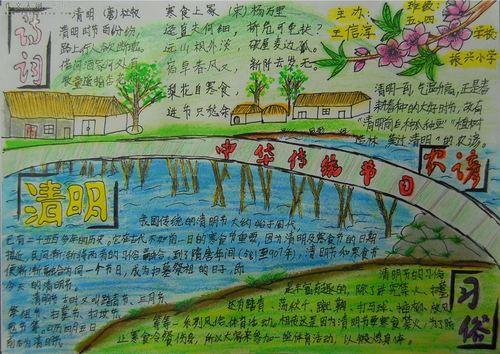 诗词
清明 (唐) 杜牧
清明时节雨纷纷
路上行人欲断魂
借问酒家何处有
牧童遥指杏花
寒食上冢 (宋) 杨万里
迳直夫何细, 桥危可免扶?
远山枫外淡, 破屋麦边孤。
宿草春风又, 新阡去岁无。
梨花自寒食,
进节只愁余
主办:
王信淳
班级:
五.四
学校
振兴小学
清明一到,气温升高,正是春
耕春种的大好时节,故有
"清明前后,种瓜种豆""植树
造林,莫过清明"的农谚。
农谚
中华传统节日
清明
我国传统的清明节大约始于周代,
已有二千五百多年的历史。
接近,民间渐渐将两者的习俗融合,到了隋唐年间(581至907年),清明节和寒食节
便渐渐融合为同一个节日,成为扫墓祭祖的日子,即
今天的清明节。
清明节古时又叫踏青节、三月节、
祭祖节、扫墓节、扫坟节、
习俗
清明节的习俗
是丰富有趣的,除了讲究禁火、扫墓
还有踏青、荡秋千、蹴鞠、打马球、插柳
等一系列风俗体育活动。相传这是因为清明节要寒食禁火,为了防
止寒食冷餐伤身,所以大家来参加一些体育活动,以锻炼身体。